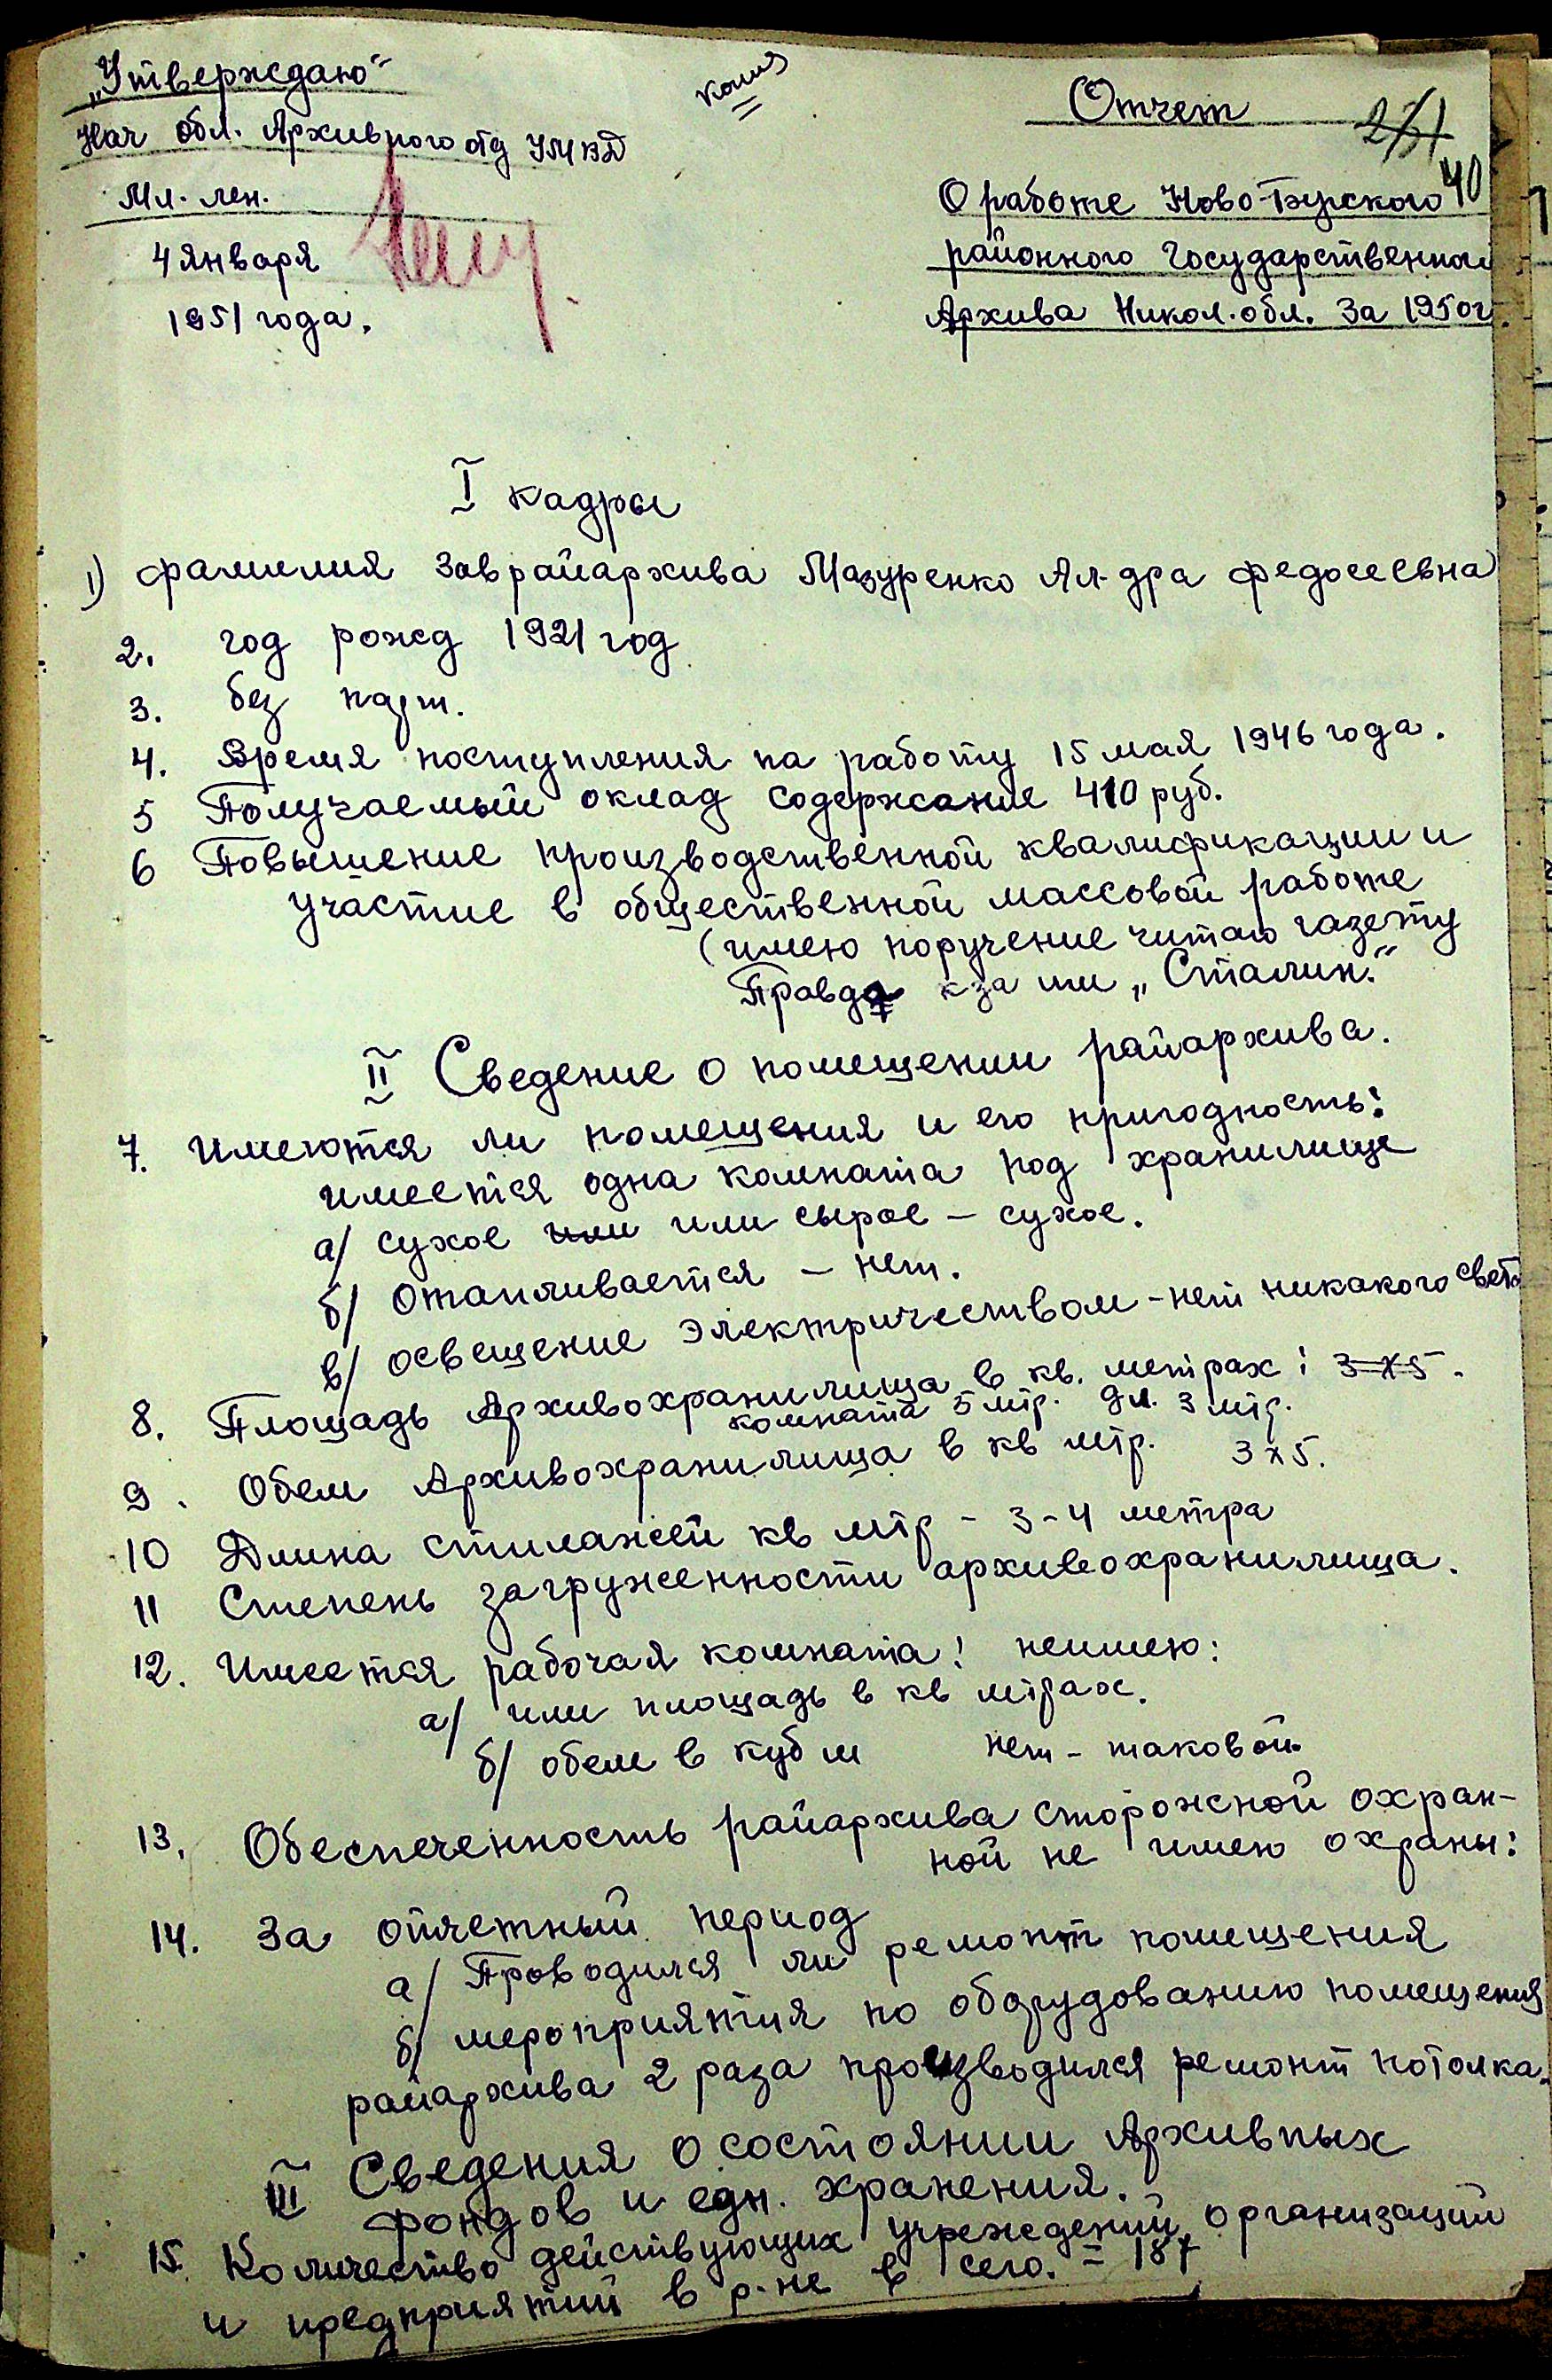 „Утверждаю"
копия
Отчет
Нач обл. Архивного отд УМВД
Мл. лен.
4 января
1951 года.
40
О работе Ново-Бугского
районного Государственног
Архива Никол. обл. За 1950г.
I кадры
1) фамилия Заврайархива Мазуренко Ал-дра Федосеевна
2. год рожд 1921 год
3. без парт.
4. Время поступления на работу 15 мая 1946 года.
5 Получаемый оклад содержание 410 руб.
6 Повышение производственной квалификации и
участие в общественной массовой работе
(имею поручение читаю газету
Правда к-за ми „Сталин."
II Сведение о помещении райархива.
7. Имеются ли помещения и его пригодность:
имеется одна комната под хранилище
а/ сухое или или сырое – сухое.
б/ Отапливается – нет.
в/ освещение электричеством - нет никакого света
8. Площадь Архивохранилища в кв. метрах: 3х5.
комната 5 мтр. дл. 3 мтр.
9. Обем Архивохранилища в кв мтр. 3х5.
10 Длина стилажей кв мтр - 3-4 метра
11 Степень загруженности архивохранилища.
12. Имеется рабочая комната! неимею:
а/ или площадь в кв мтрах.
б/ обем в куб м нет - таковой.
13. Обеспеченность райархива сторожной охран-
ной не имею охраны:
14. За отчетный период
а/ Проводился ли ремонт помещения
б/ мероприятия по оборудованию помещения
райархива 2 раза производился ремонт потолка.
III Сведения о состоянии Архивных
фондов и едн. хранения.
15. Количество действующих учреждений, организаций
и предприятий в р-не в сего. = 187